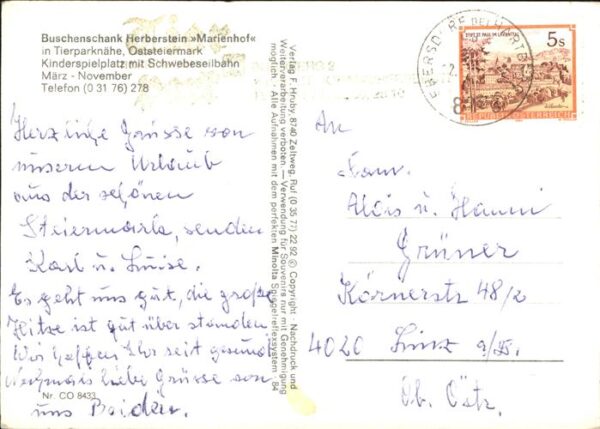 Buschenschank Herberstein »Marienhof«
in Tierparknähe, Oststeiermark
Kinderspielplatz mit Schwebeseilbahn
März - November
Telefon (0 31 76) 278
Herzliche Grüsse von
unserem Urlaub
aus der schönen
Steiermark, senden
Karl u. Luise.
Es geht uns gut, die große
Hitze ist gut überstanden.
Wir hoffen Ihr seit gesund.
Nochmals liebe Grüsse von
uns Beiden.
Nr. CO 8433
Verlag F. Hruby, 8740 Zeltweg, Ruf (0 35 77) 22 92 © Copyright - Nachdruck und
Weiterverarbeitung verboten - Verwendung für Souvenirs nur mit Genehmigung
möglich - Alle Aufnahmen mit dem perfekten Minolta Spiegelreflexsystem '84
EBERSDORF BEI HARTBERG
STIFT ST. PAUL IM LAVANTTAL
5 S
REPUBLIK ÖSTERREICH
An
Fam.
Alois u. Hanni
Grüner
Körnerstr 48/2
4020 Linz a/D.
Ob. Östr.